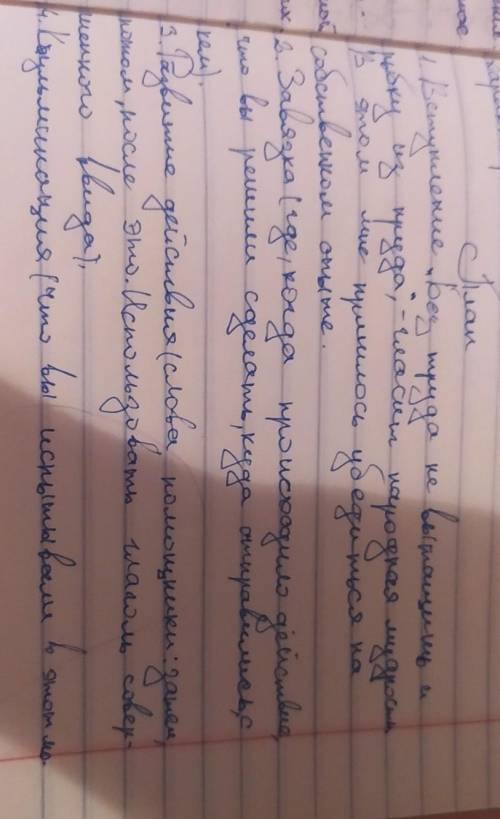 План
1. Вступление. "Без труда не вытащишь и
рыбку из пруда", - гласит народная мудрость
В этом мне пришлось убедиться на
собственном опыте.
2. Завязка (где, когда происходило действие,
что вы решили сделать, куда отправились, с
кем).
3. Развитие действия (слова помощники: затем,
потом, после это. Использовать глаголы совер-
шенного вида).
4. Кульминация (что вы испытывали в этот мо-